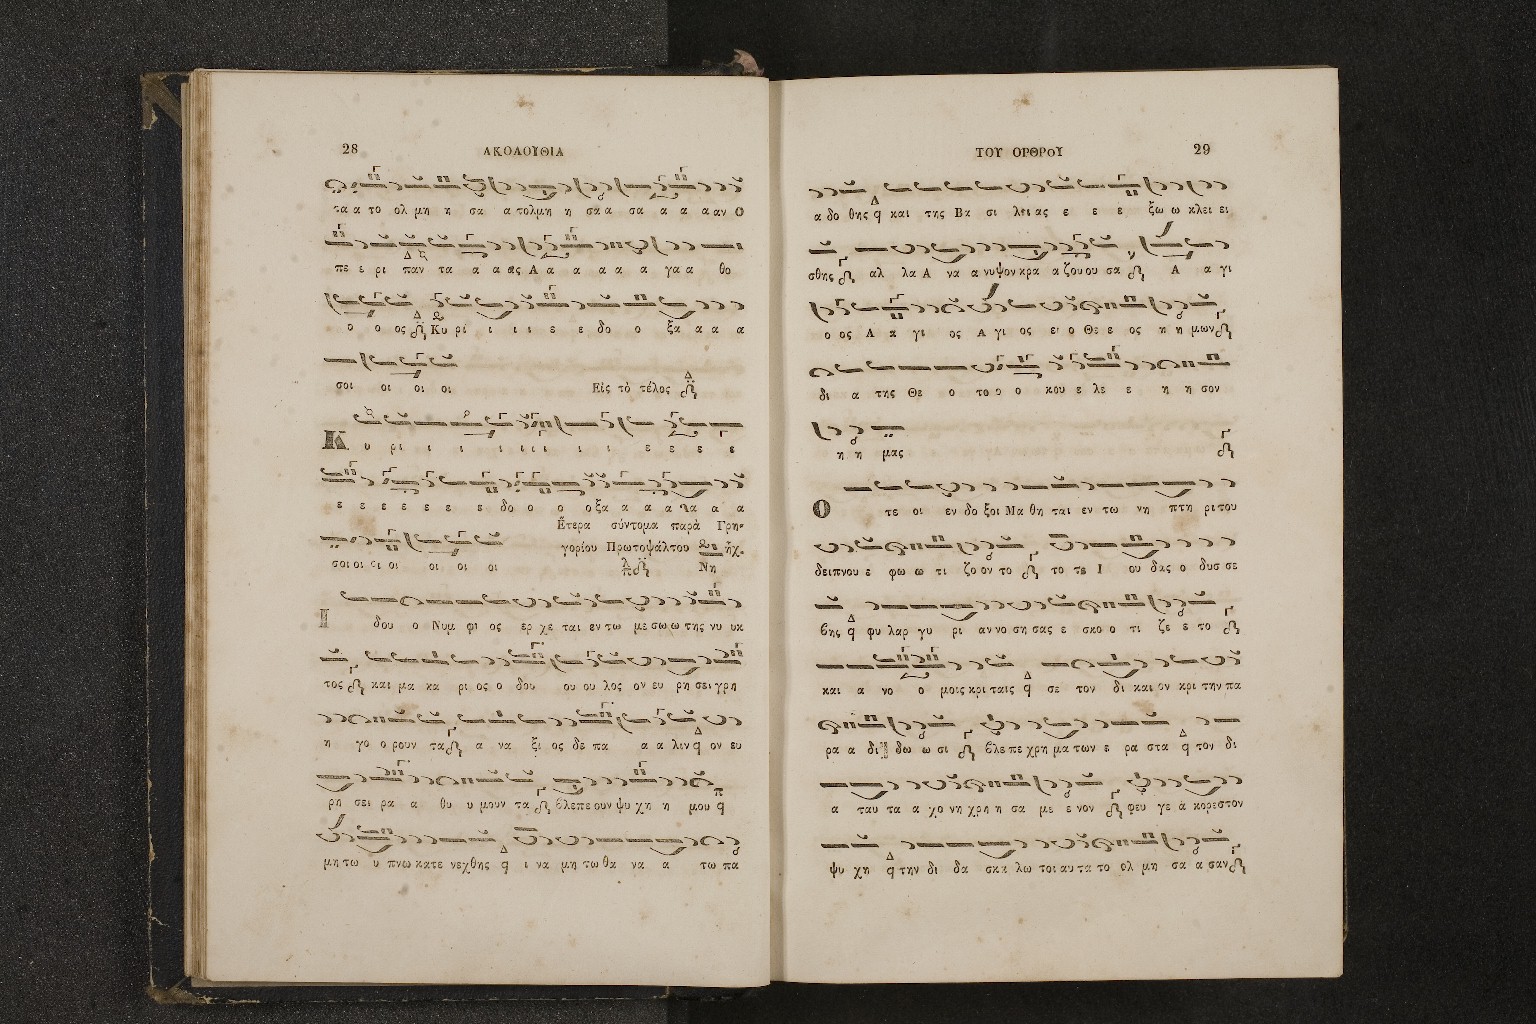 28 ΑΚΟΛΟΥΘΙΑ
τα α το ολ μη η σα α τολμη η σα α σα α α α αν Ο
πε ε ρι παν τα α α ας Α α α α α α γα α θο
ο ο ος Κυ ρι ι ι ι ε ε δο ο ξα α α α
σοι οι οι οι Εἰς τὸ τέλος
Κ υ ρι ι ι ι ι ι ι ι ι ε ε ε ε ε
ε ε ε ε ε ε ε δο ο ο οξα α α α α α α α
Ἕτερα σύντομα παρὰ Γρη-
γορίου Πρωτοψάλτου ἦχ.
σοι οι οι οι οι οι οι Νη
Ι δου ο Νυμ φι ος ερ χε ται εν τω με σω ω της νυ υκ
τος και μα κα ρι ος ο δου ου ου λος ον ευ ρη σει γρη
η γο ο ρουν τα α να ξι ος δε πα α α λιν ον ευ
ρη σει ρα α θυ υ μουν τα βλεπε ουν ψυ χη η μου
μη τω υ πνω κατε νεχθης ι να μη τω θα να α τω πα
ΤΟΥ ΟΡΘΡΟΥ 29
α δο θης και της Βα σι λει ας ε ε ε ξω ω κλει ει
σθης αλ λα Α να α νυψον κρα α ζου ου σα Α α γι
ο ος Α α γι ος Α γι ος ει ο Θε ε ος η η μων
δι α της Θε ο το ο ο κου ε λε ε η η σον
η η μας
Ο τε οι εν δο ξοι Μα θη ται εν τω νη πτη ρι του
δειπνου ε φω ω τι ζο ον το το τε Ι ου δας ο δυσ σε
βης φυ λαρ γυ ρι αν νο ση σας ε σκο ο τι ζε ε το
και α νο ο μοις κρι ταις σε τον δι και ον κρι την πα
ρα α δι δω ω σι βλε πε χρη μα των ε ρα στα τον δι
α ταυ τα α χο νη χρη η σα με ε νον φευ γε α κορεστον
ψυ χη την δι δα σκα λω τοι αυ τα το ολ μη σα α σαν